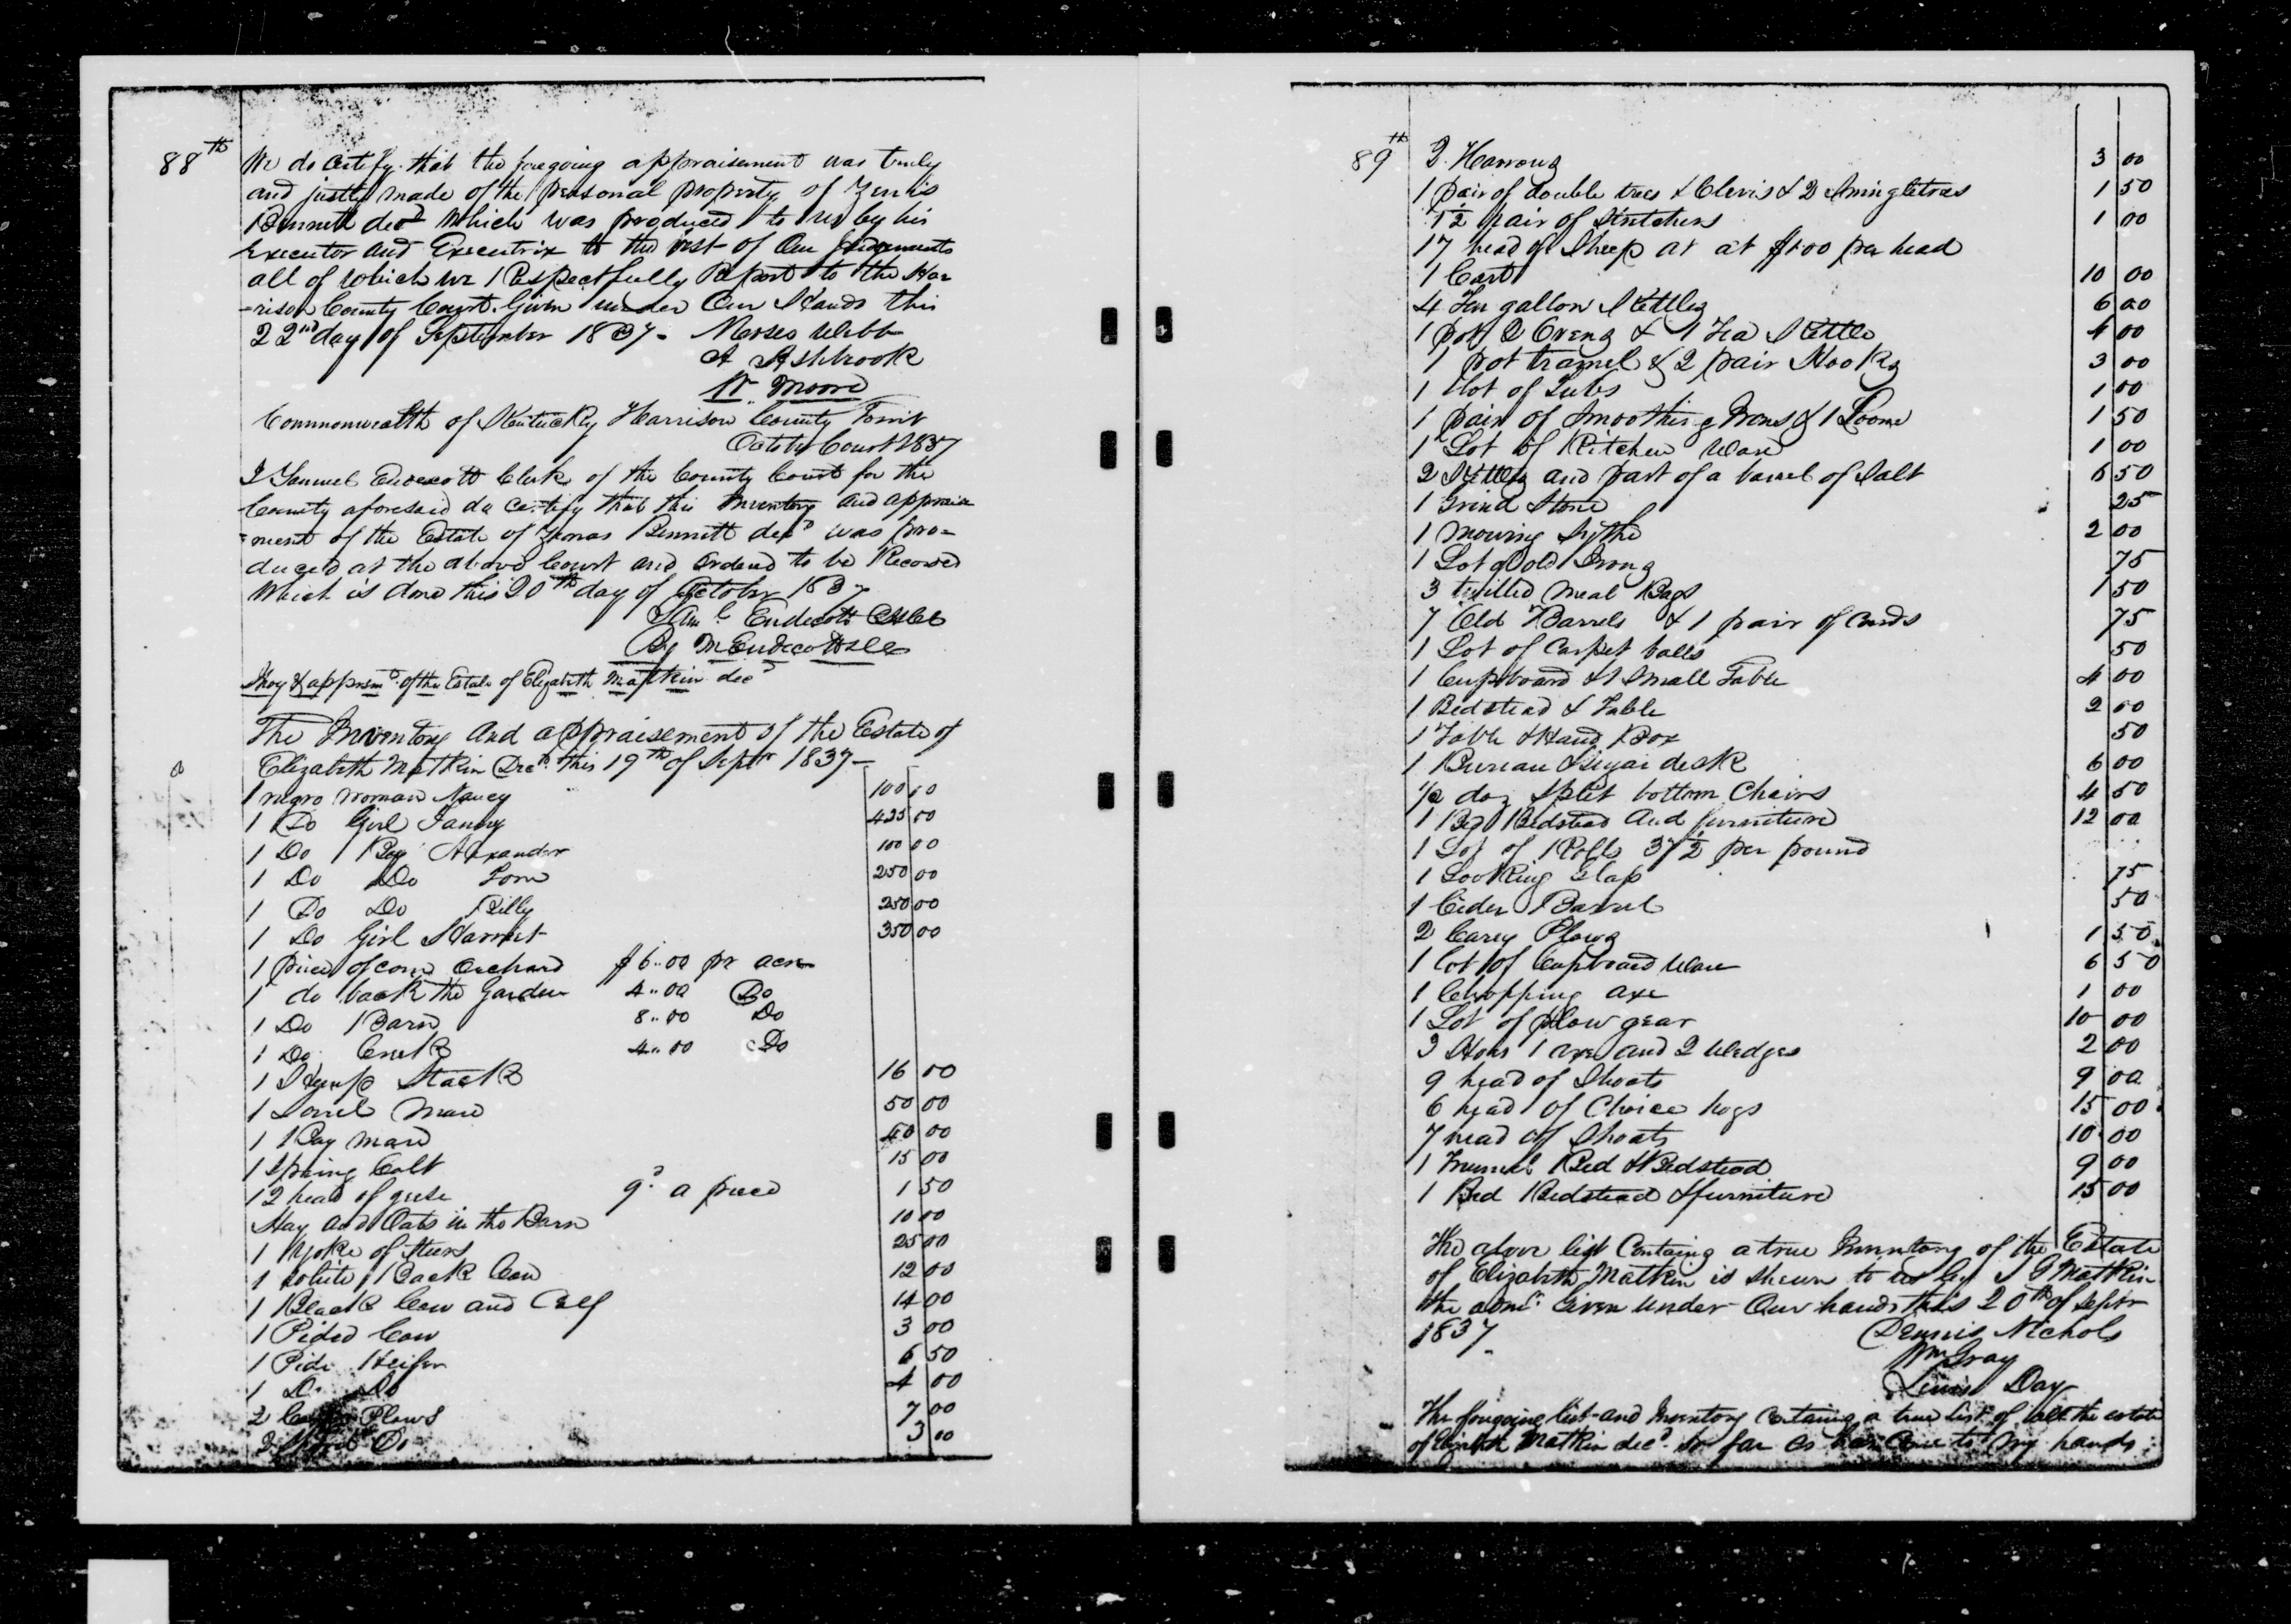 88th
We do certify that the foregoing appraisement was truly
and justly made of the personal property of
Bennett decd Which was produced to us by his
Executor and Executrix to the best of Our Judgments
all of which we Respectfully Report to the Har
-rison County Court. Given under Our Hands this
22nd day of September 1837. Moses Webb
A Ashbrook
W. Moore
Commonwealth of Kentucky Harrison County Towit
October Court 1837
I Samuel Endecott Clerk of the County Court for the
County aforesaid do certify that this Inventory and appraise
=ment of the Estate of Bennett decd was pro=
duced at the above Court and Ordered to be Recorded
Which is done this 20th day of October 1837
Saml Endecott
By M Endecott
Invy & appraismt of the Estate of Elizabeth Matkin decd
The Inventory and appraisement of the Estate of
Elizabeth Matkin Decd this 19th of Sept 1837-
1 negro woman Nancy 100 00
1 Do Girl Fanny 425 00
1 Do Boy Alexander 100 00
1 Do Do Tom 250 00
1 Do Do Billy 250 00
1 Do Girl Harriet 350 00
1 piece of corn Orchard $6..00 pr acre
1 do back the Garden 4..00 Do
1 Do Barn 8..00 Do
1 Do Creek 4..00 Do
1 Hemp Stack 16 00
1 Sorrel Mare 50 00
1 Bay mare 40 00
1 Spring Colt 15 00
12 head of geese 9d a piece 1 50
Hay and Oats in the Barn 10 00
1 Yoke of Steers 25 00
1 White Back Cow 12 00
1 Black Cow and Calf 14 00
1 Pided Cow 3 00
1 Pide Heifer 6 50
1 Do Do 4 00
2 Plows 7 00
Do 3 00
89th
2 Harrows 3 00
1 pair of double trees & Clevis & 2 Swingletrees 1 50
1 1/2 pair of Stretchers 1 00
17 head of Sheep at at $1.00 per head
1 Cart 10 00
4 Ten gallon Kettles 6 00
1 pot 2 Ovens & 1 Tea Kettle 4 00
1 pot tramel & 2 pair Hooks 3 00
1 lot of Tubs 1 00
1 pair of Smoothing Irons & 1 Loom 1 50
1 Lot of Kitchen Ware 1 00
2 Kettles and part of a barrel of Salt 6 50
1 Grind Stone 25
1 Mowing Sythe 2 00
1 Lot of Old Irons 75
3 twilled Meal Bags 1 50
7 Old Barrels & 1 pair of Cards 75
1 Lot of Carpet balls 50
1 Cupboard & 1 Small Table 4 00
1 Bedstead & Table 2 00
1 Table & Hand Box 50
1 Bureau & Sugar desk 6 00
1/2 doz Split bottom Chairs 4 50
1 Bed Bedstead and furniture 12 00
1 Lot of Rolls 37 1/2 per pound
1 Looking Glass 75
1 Cider Barrel 50
2 Carey Plows 1 50
1 lot of Cupboard Ware 6 50
1 Chopping axe 1 00
1 Lot of plow gear 10 00
3 Hoes 1 axe and 2 Wedges 2 00
9 head of Shoats 9 00
6 head of Choice hogs 15 00
7 head of Shoats 10 00
1 Trunnel Bed & Bedstead 9 00
1 Bed Bedstead & furniture 15 00
The above list Containg a true Inventory of the Estate
of Elizabeth Matkin is shewn to us by Matkin
the admr. Given under Our hands this 20th of Septr
1837.
Dennis Nichols
Wm Gray
Lewis Day
The foregoing list and Inventory Containg a true List of all the estate
of Elizabeth Matkin decd. So far as has Come to My hands